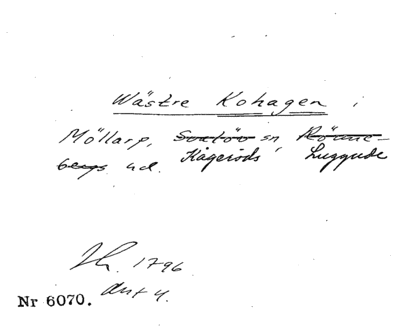 Wästre Kohagen i
Möllarp, Svalöv sn Rönne-
bergs hd. Kågeröds Luggude
1796
Nr 6070. akt 4.